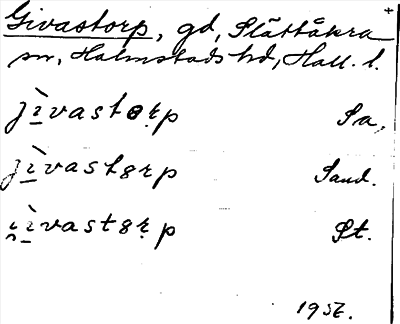 Givastorp, gd, Slättåkra
sn, Halmstads hd, Hall. l.
jìvastorp Sa.
jìvastꝏrp Sand.
i̯ìvastꝏrp St.
1956.